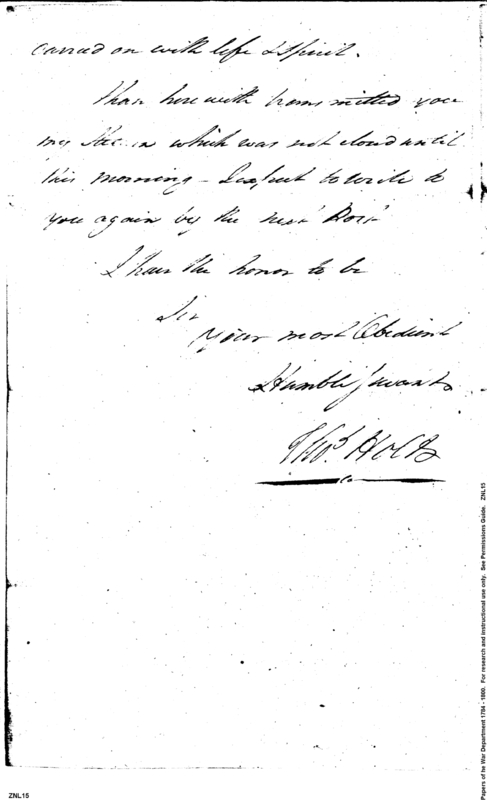 carried on with life & Spirit.
I have herewith transmitted you
my which was not closed until
this morning - I expect to write to
you again by the next Post
I have the honor to be
Sir
Your most Obedient
Humble Servant
Tho.s Holt
Papers of he War Department 1784 - 1800. For research and instructional use only. See Permissions Guide. ZNL15
ZNL15